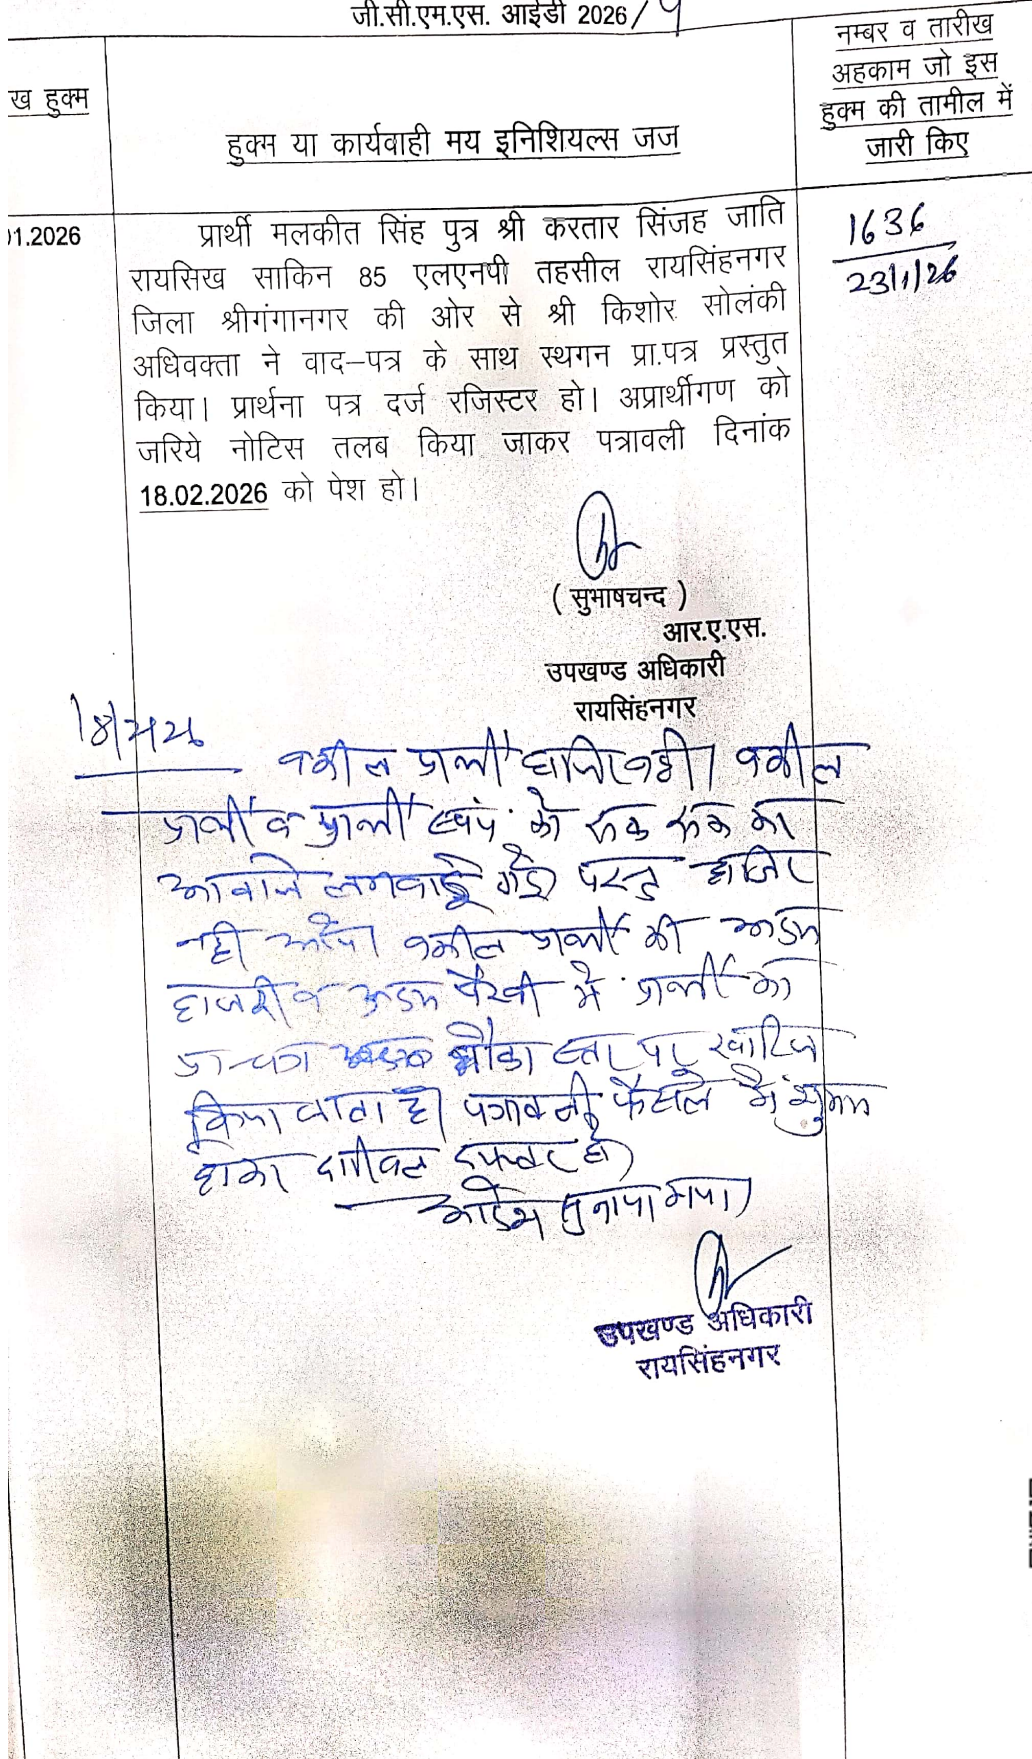 जी.सी.एम.एस. आईडी 2026/9
ख हुक्म
हुक्म या कार्यवाही मय इनिशियल्स जज
नम्बर व तारीख
अहकाम जो इस
हुक्म की तामील में
जारी किए
01.2026
प्रार्थी मलकीत सिंह पुत्र श्री करतार सिंजह जाति
रायसिख साकिन 85 एलएनपी तहसील रायसिंहनगर
जिला श्रीगंगानगर की ओर से श्री किशोर सोलंकी
अधिवक्ता ने वाद–पत्र के साथ स्थगन प्रा.पत्र प्रस्तुत
किया। प्रार्थना पत्र दर्ज रजिस्टर हो। अप्रार्थीगण को
जरिये नोटिस तलब किया जाकर पत्रावली दिनांक
18.02.2026 को पेश हो।
1636
23/1/26
( सुभाषचन्द )
आर.ए.एस.
उपखण्ड अधिकारी
रायसिंहनगर
वकील प्रार्थी हाजिर नही। वकील
प्रार्थी व प्रार्थी स्वयं को रुक रुक कर
आवाजे लगवाई गई परन्तु हाजिर
नही आये। वकील प्रार्थी की अदम
हाजरी व अदम पैरवी मे प्रार्थी का
प्रा.पत्र मौका स्तर पर खारिज
किया जाता है। पत्रावली फैसले मे शुमार
होकर दाखिल दफ्तर हो।
आदेश सुनाया गया।
उपखण्ड अधिकारी
रायसिंहनगर